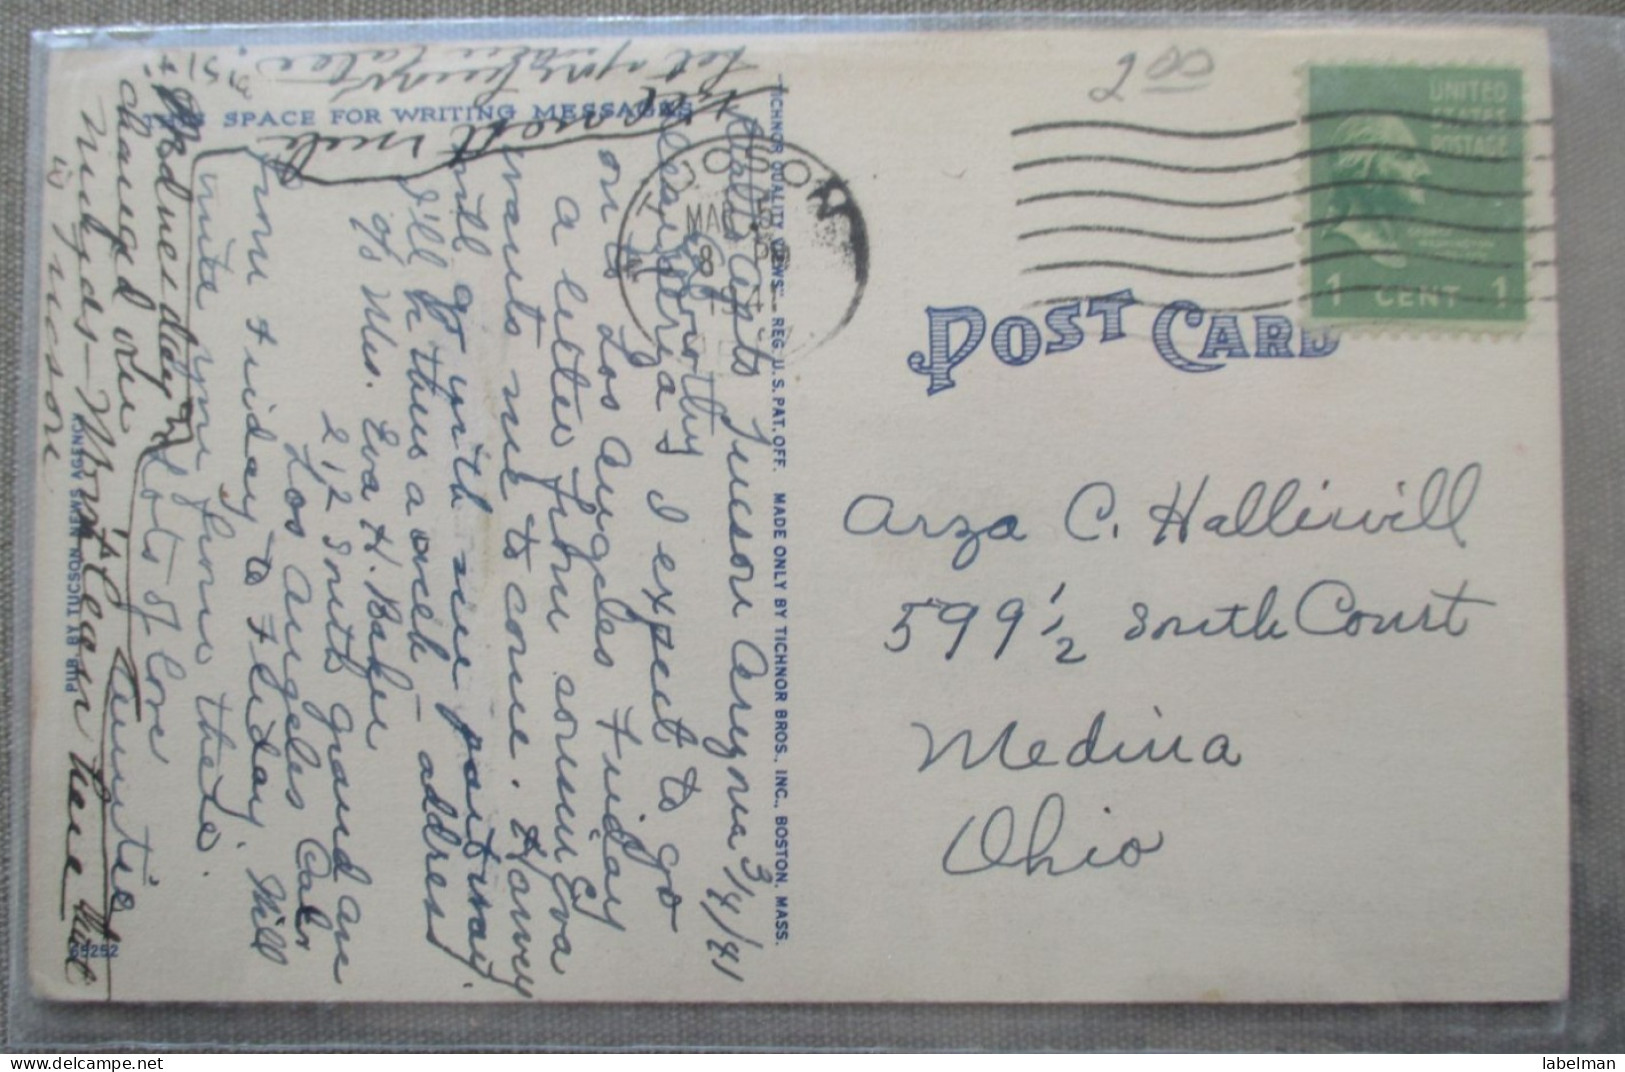 2 00
UNITED
STATES
POSTAGE
1 CENT 1
POST CARD
TUCSON
MAR
8
Arza C. Halliwill
599 1/2 South Court
Medina
Ohio
THIS SPACE FOR WRITING MESSAGES
"TICHNOR QUALITY VIEWS" REG. U. S. PAT. OFF. MADE ONLY BY TICHNOR BROS., INC., BOSTON, MASS.
PUB. BY TUCSON NEWS AGENCY
65252
Apts Tucson Arizona 3/4/41
Dorothy I expect to go
on to Los Angeles Friday
a letter from cousin Eva
wants me to come. Harvey
will go with me part way
I'll be there a week - address
c/o Mrs. Eva H. Baker
212 South Grand Ave
Los Angeles Calif
from Friday to Friday. Will
write you from there.
Lots of love
Wednesday
changed our
minds -
in Tucson